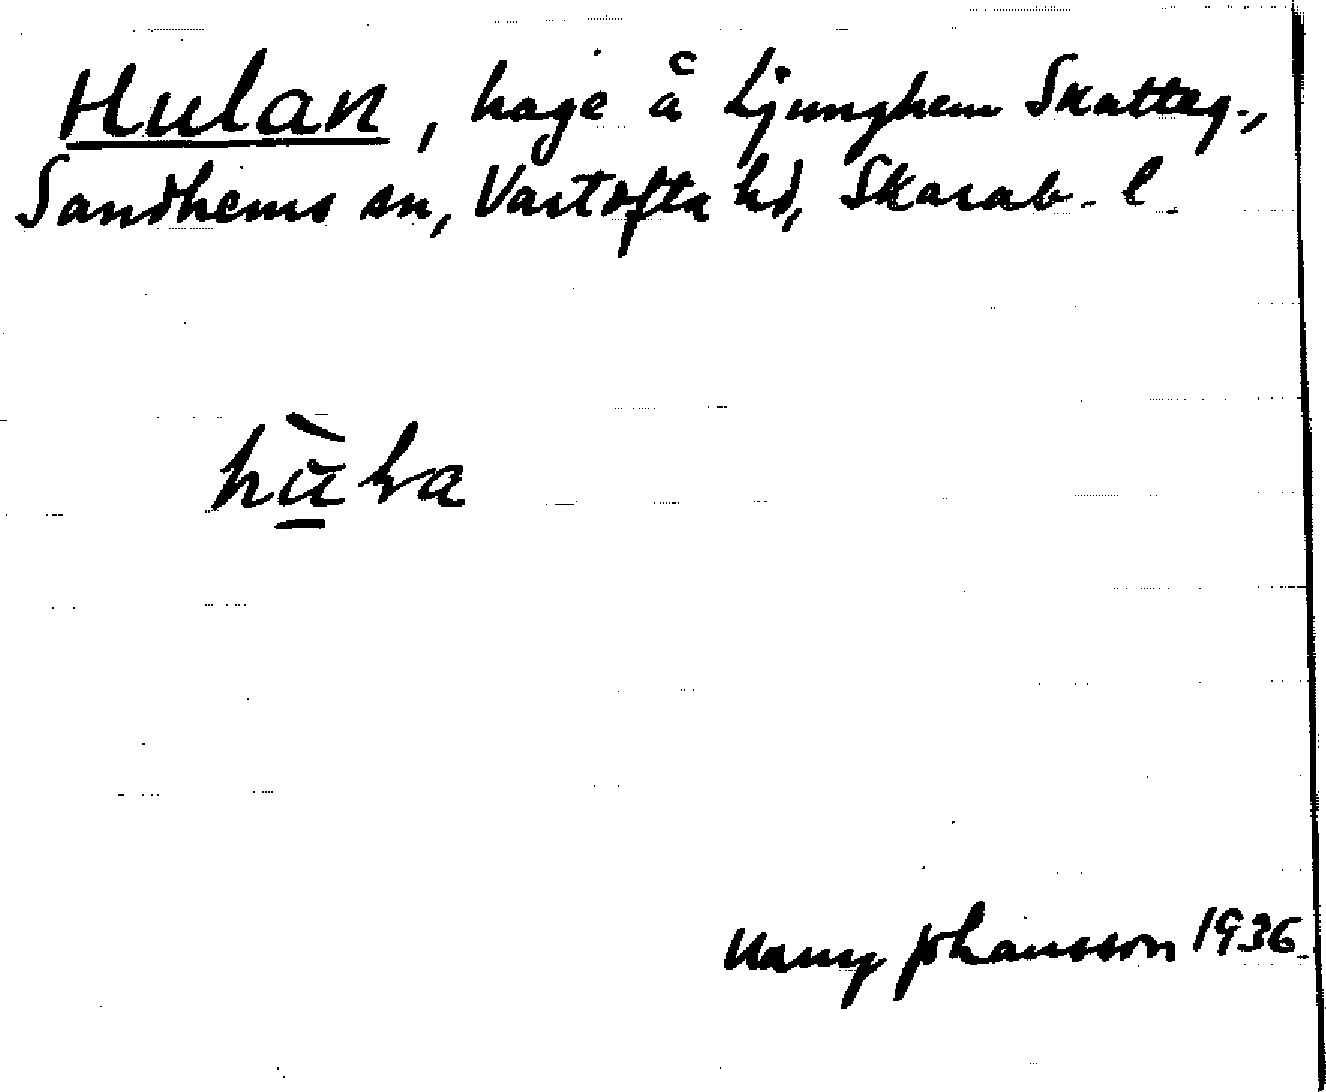 Hulan, hage å Ljunghem Skatteg.,
Sandhems sn, Vartofta hd, Skarab. l.
Nanny Johansson 1936.